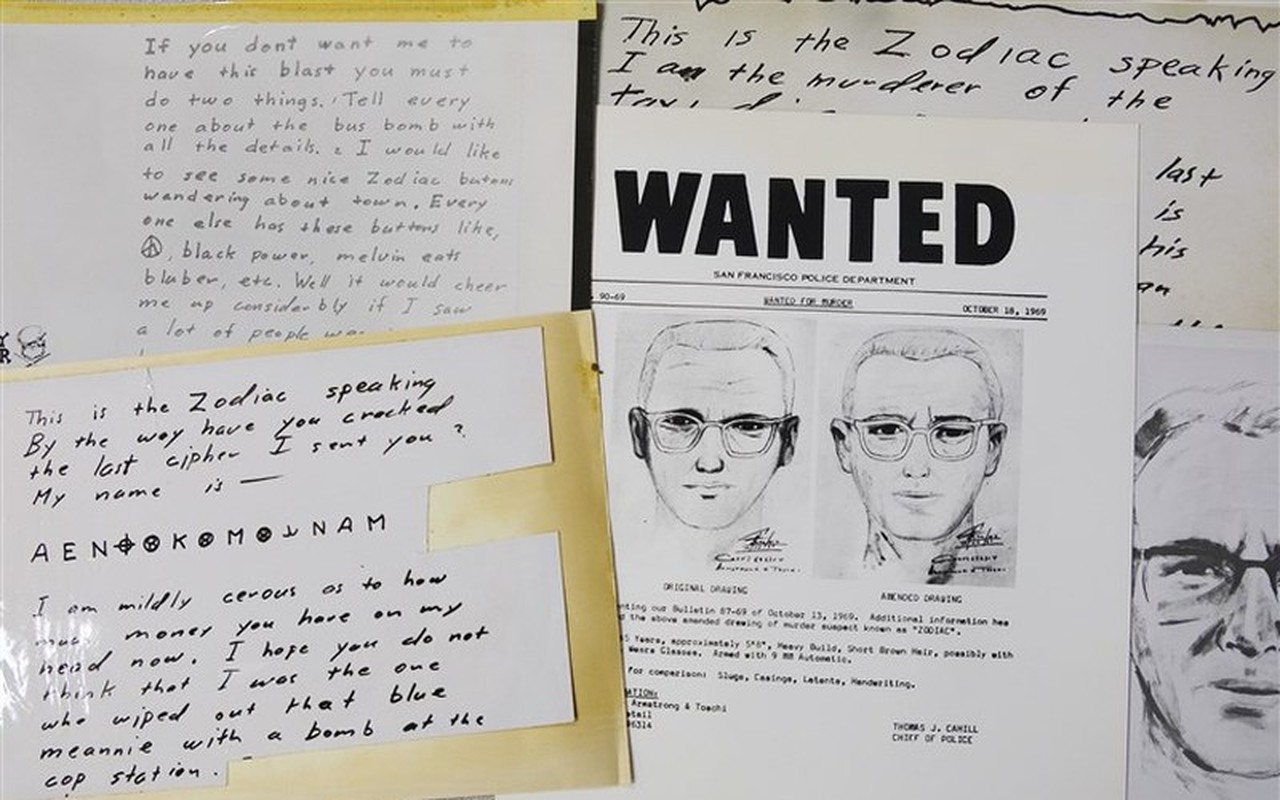 If you dont want me to
have this blast you must
do two things. 1 Tell every
one about the bus bomb with
all the details. 2 I would like
to see some nice Zodiac butons
wandering about town. Every
one else has these buttons like,
, black power, melvin eats
bluber, etc. Well it would cheer
me up considerbly if I saw
a lot of people
This is the Zodiac speaking
I am the murderer of the
last
is
his
an
This is the Zodiac speaking
By the way have you cracked
the last cipher I sent you ?
My name is —
A E N ⌖ ⊗ K ⊗ M ⊗ ⅃ N A M
I am mildly cerous as to how
much money you have on my
head now. I hope you do not
think that I was the one
who wiped out that blue
meannie with a bomb at the
cop station.
WANTED
SAN FRANCISCO POLICE DEPARTMENT
90-69 WANTED FOR MURDER OCTOBER 18, 1969
ORIGINAL DRAWING AMENDED DRAWING
our Bulletin 87-69 of October 13, 1969. Additional information has
the above amended drawing of murder suspect known as "ZODIAC".
Years, approximately 5'8", Heavy Build, Short Brown Hair, possibly with
Wears Glasses. Armed with 9 MM Automatic.
for comparison: Slugs, Casings, Latents, Handwriting.
Armstrong & Toschi
THOMAS J. CAHILL
CHIEF OF POLICE